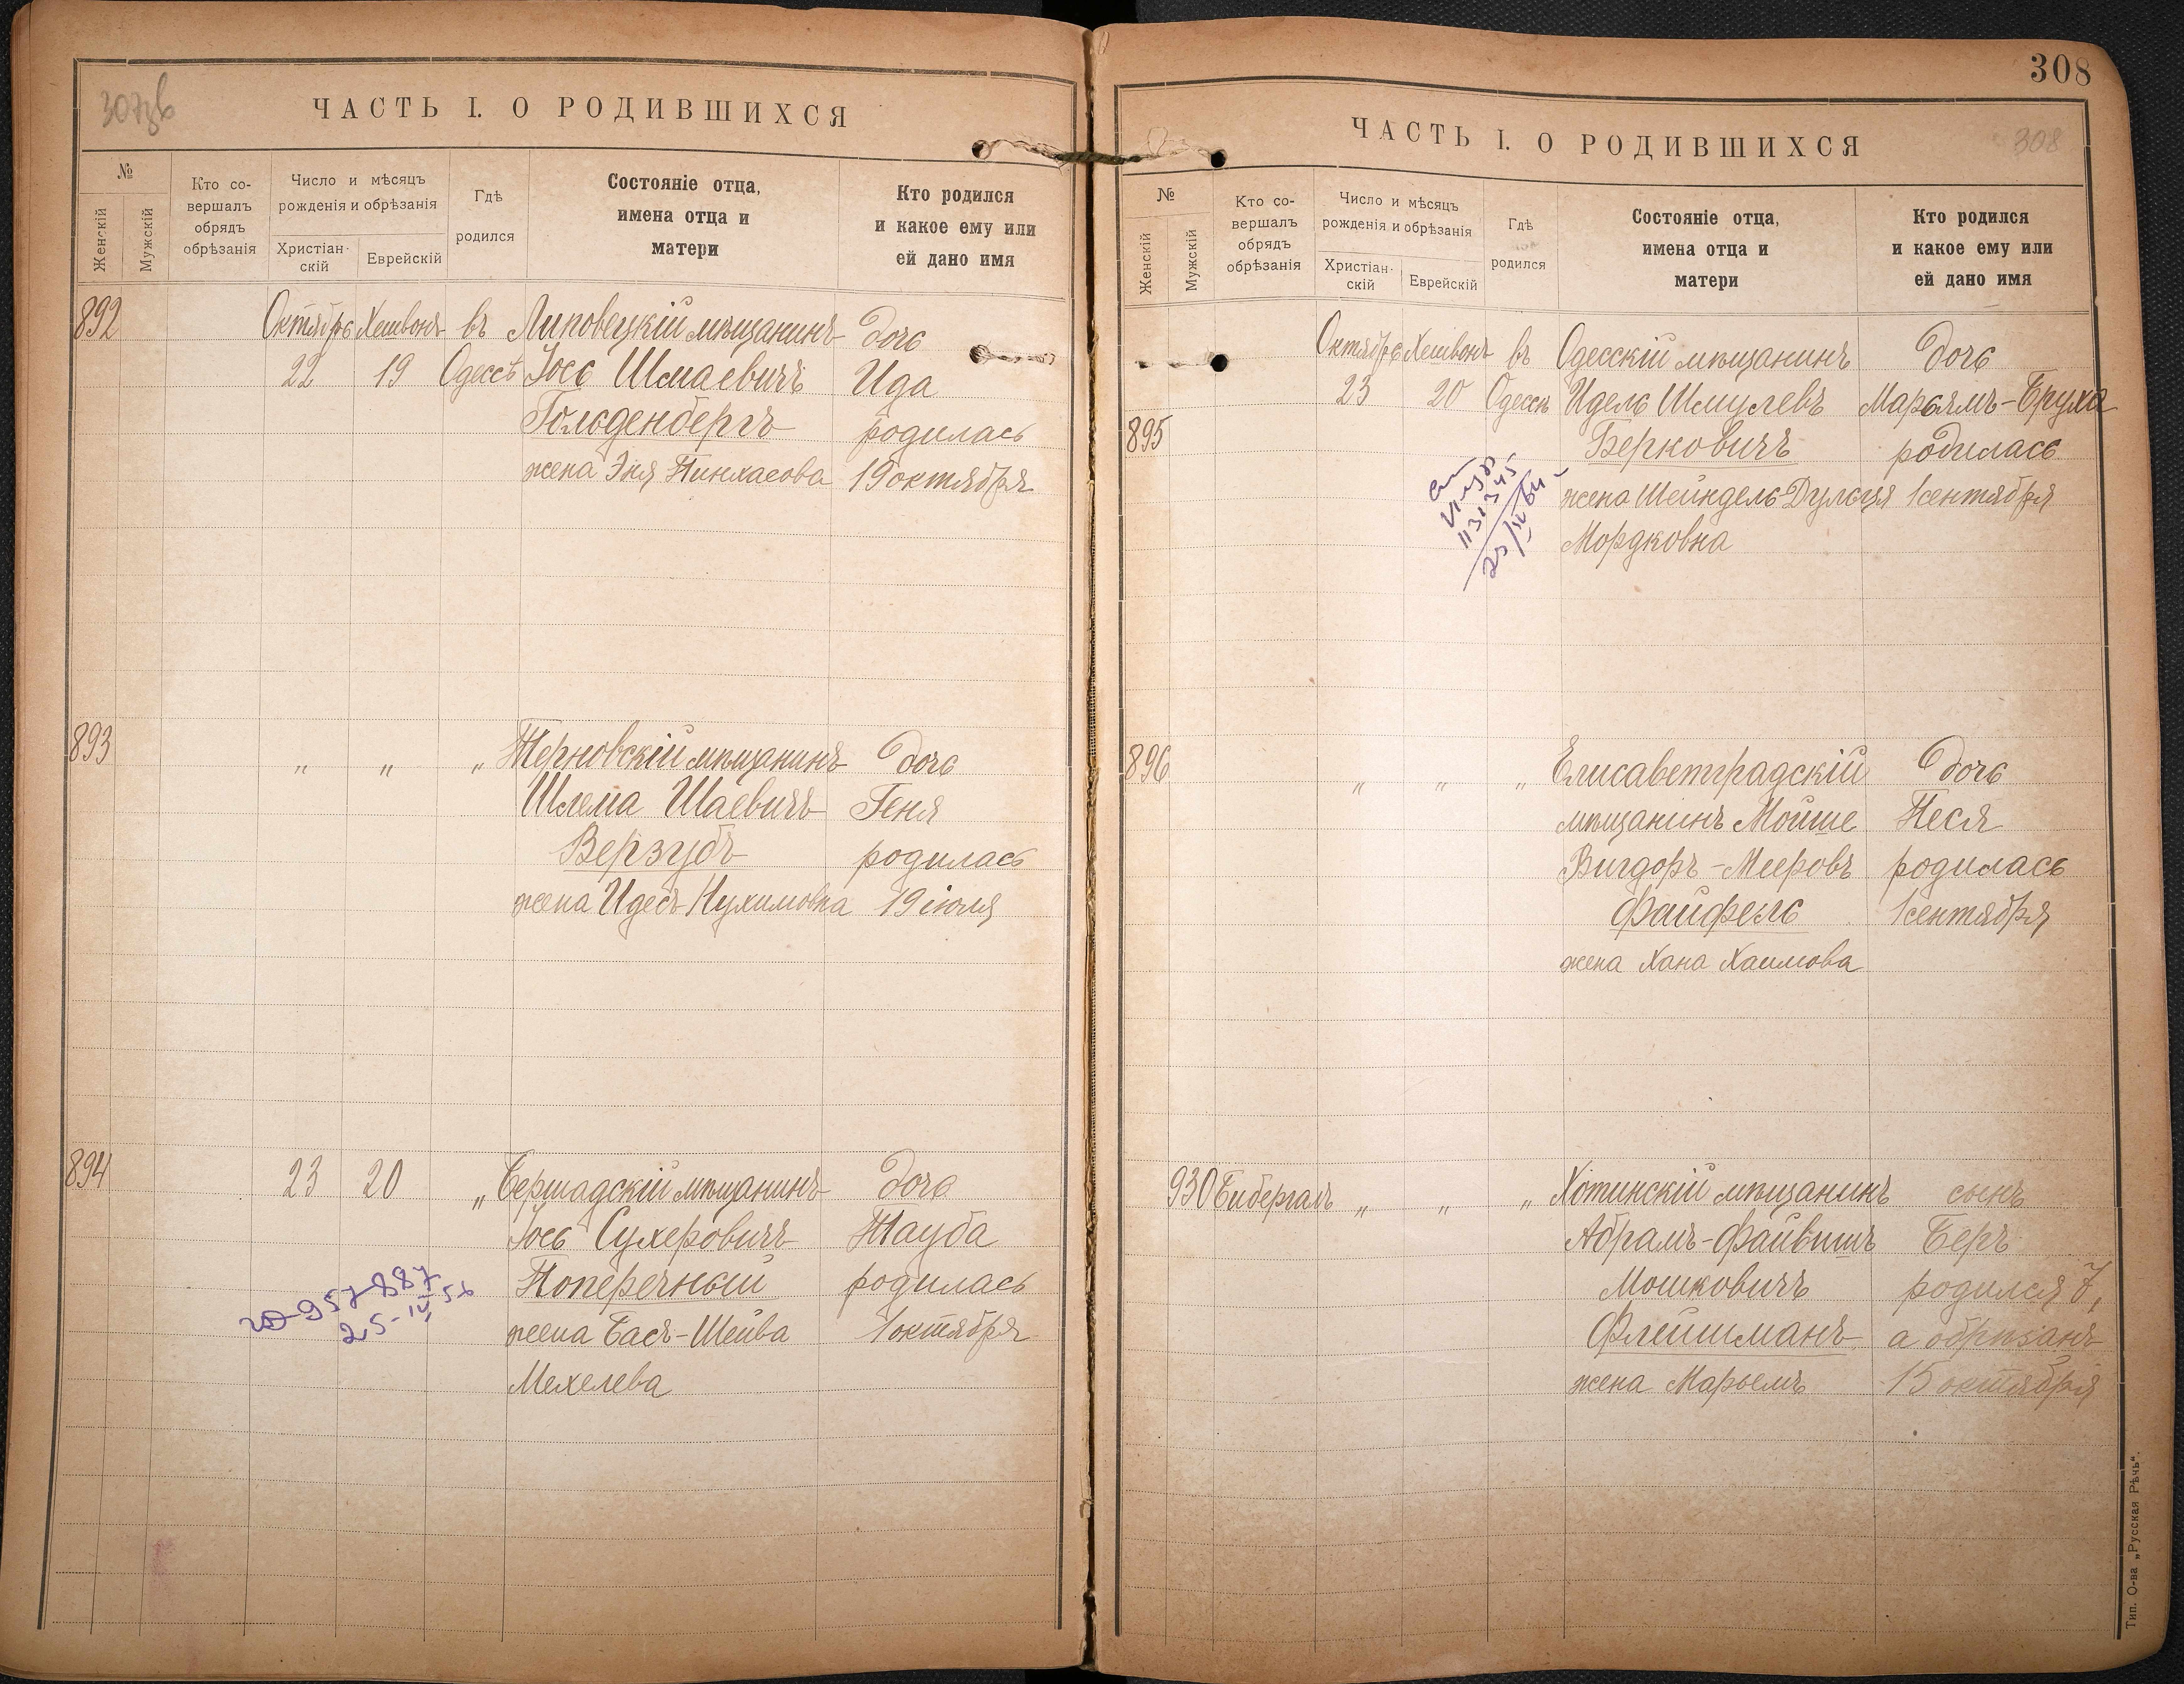 307об
ЧАСТЬ I. О РОДИВШИХСЯ
№
Женскій
Мужскій
Кто со-
вершалъ
обрядъ
обрѣзанія
Число и мѣсяцъ
рожденія и обрѣзанія
Христіан-
скій
Еврейскій
Гдѣ
родился
Состояніе отца,
имена отца и
матери
Кто родился
и какое ему или
ей дано имя
892 Октябрь Хешвонъ въ Липовецкій мѣщанинъ дочь
22 19 Одессѣ Іось Шмаевичъ Ида
Гольденбергъ родилась
жена Эня Пинхасова 19 октября
893 „ „ „ Терновскій мѣщанинъ дочь
Шлема Шаевичъ Геня
Верзубъ родилась
жена Идесъ Нухимовна 19 іюля
894 23 20 „ Бершадскій мѣщанинъ дочь
Іось Сухеровичъ Тауба
Поперечный родилась
жена Бася-Шейва 1 октября
Мехелева
957-887
25-IV 56
308
ЧАСТЬ I. О РОДИВШИХСЯ
308
№
Женскій
Мужскій
Кто со-
вершалъ
обрядъ
обрѣзанія
Число и мѣсяцъ
рожденія и обрѣзанія
Христіан-
скій
Еврейскій
Гдѣ
родился
Состояніе отца,
имена отца и
матери
Кто родился
и какое ему или
ей дано имя
Октябрь Хешвонъ въ Одесскій мѣщанинъ дочь
23 20 Одессѣ Идель Шмулевъ Марьямъ-Бруха
895 Берковичъ родилась
жена Шейндель-Дульця 1 сентября
Мордковна
896 „ „ „ Елисаветградскій дочь
мѣщанинъ Мойше Песя
Вигдоръ-Мееровъ родилась
Файфель 1 сентября
жена Хана Хаимова
930 Бибергаль „ „ „ Хотинскій мѣщанинъ сынъ
Абрамъ-Файвишъ Беръ
Мошковичъ родился 7,
Флейшманъ а обрѣзанъ
жена Марьемъ 15 октября
Тип. О-ва „Русская Рѣчь".